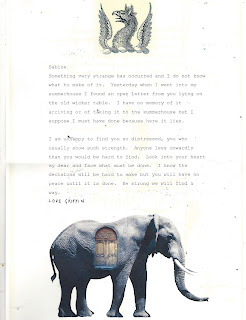 Sabine.
Something very strange has occurred and I do not know
what to make of it. Yesterday when I went into my
summerhouse I found an open letter from you lying on
the old wicker table. I have no memory of it
arriving or of taking it to the summerhouse but I
suppose I must have done because here it lies.
I am unhappy to find you so distressed, you who
usually show such strength. Anyone less cowardly
than you would be hard to find. Look into your heart
my dear and face what must be done. I know the
decisions will be hard to make but you will have no
peace until it is done. Be strong we will find a
way.
LOVE GRIFFIN